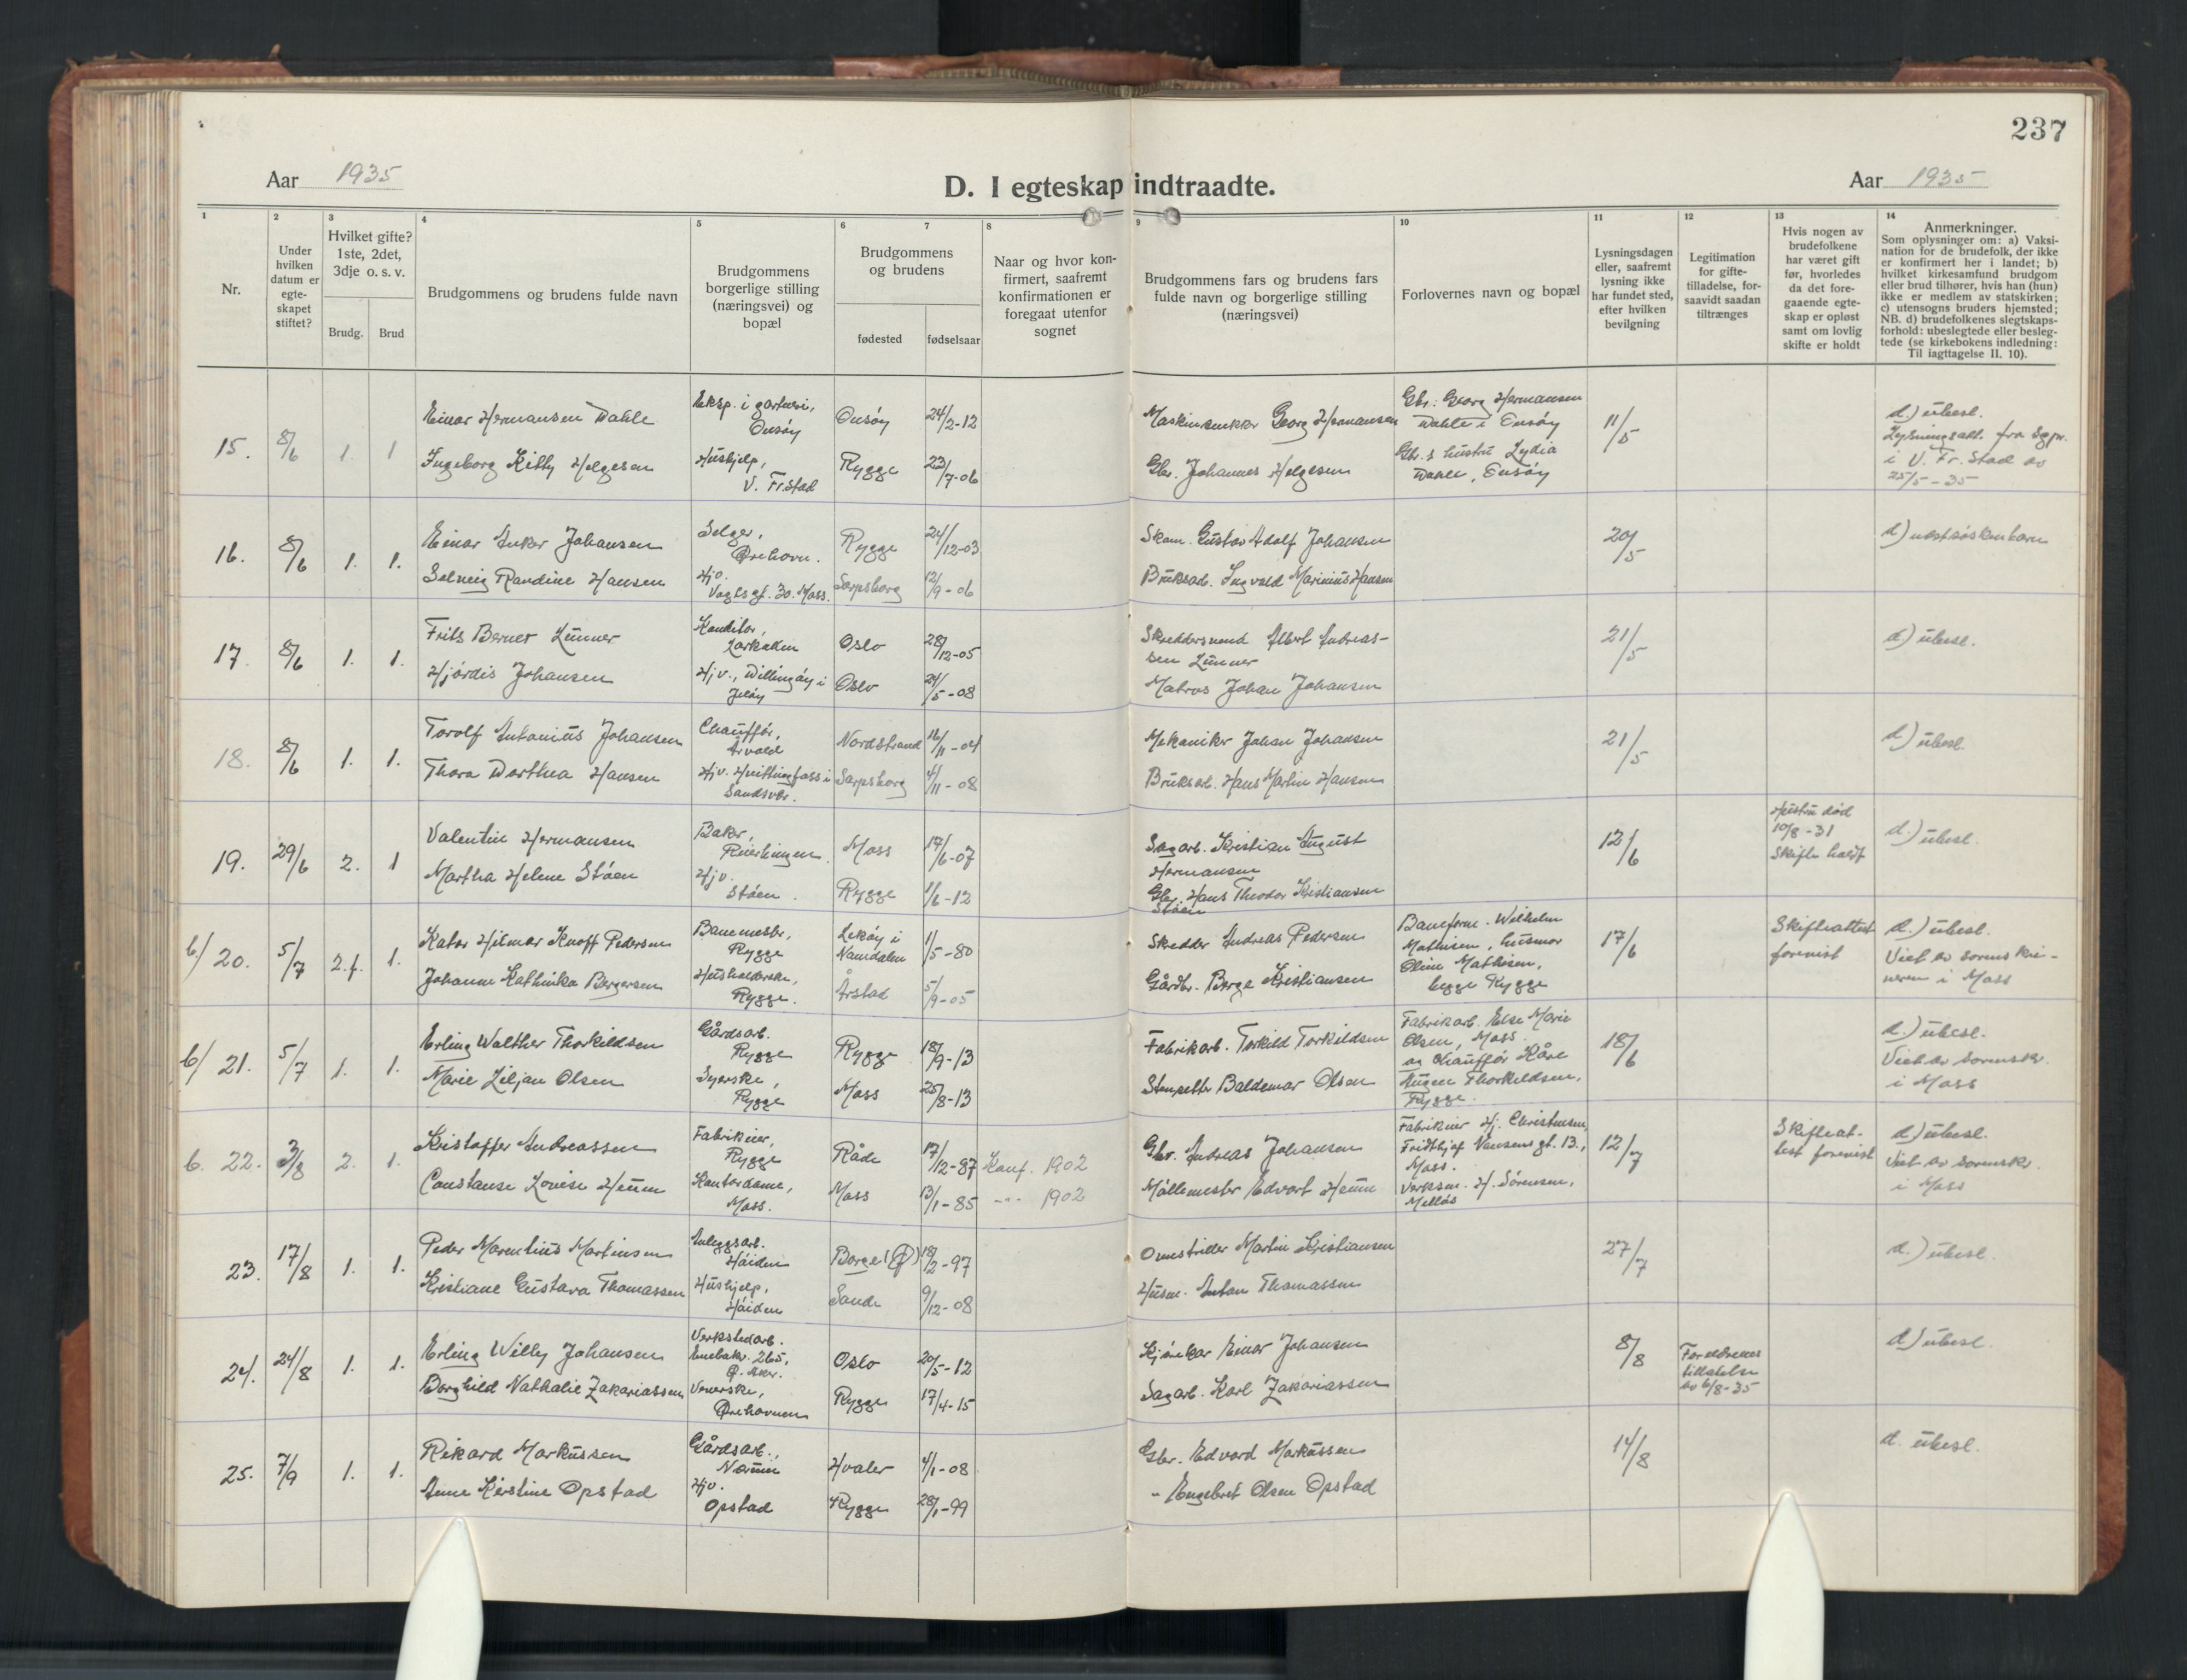 237
Aar 1935
D. I egteskap indtraadte.
Aar 1935
1
2
3
4
5
6
7
8
9
10
11
12
13
14
Nr.
Under
hvilken
datum er
egte-
skapet
stiftet?
Hvilket gifte?
1ste, 2det,
3dje o. s. v.
Brudg.
Brud
Brudgommens og brudens fulde navn
Brudgommens
borgerlige stilling
(næringsvei) og
bopæl
Brudgommens
og brudens
fødested
fødselsaar
Naar og hvor kon-
firmert, saafremt
konfirmationen er
foregaat utenfor
sognet
Brudgommens fars og brudens fars
fulde navn og borgerlige stilling
(næringsvei)
Forlovernes navn og bopæl
Lysningsdagen
eller, saafremt
lysning ikke
har fundet sted,
efter hvilken
bevilgning
Legitimation
for gifte-
tilladelse, for-
saavidt saadan
tiltrænges
Hvis nogen av
brudefolkene
har været gift
før, hvorledes
da det fore-
gaaende egte-
skap er opløst
samt om lovlig
skifte er holdt
Anmerkninger.
Som oplysninger om: a) Vaksi-
nation for de brudefolk, der ikke
er konfirmert her i landet; b)
hvilket kirkesamfund brudgom
eller brud tilhører, hvis han (hun)
ikke er medlem av statskirken;
c) utensogns bruders hjemsted;
NB. d) brudefolkenes slegtskaps-
forhold: ubeslegtede eller besleg-
tede (se kirkebokens indledning:
Til iagttagelse II. 10).
15. 8/6 1. 1
Einar Hermansen Dahle
Ingeborg Kitty Helgesen
Eksp. i gartneri,
Onsøy
Hushjelp,
V. Fr.stad
Onsøy 24/2-12
Rygge 23/7-06
Maskinsnekker Georg Hermansen
Gbr. Johannes Helgesen
Gbr. Georg Hermansen
Dahle i Onsøy
Gbr.s hustru Lydia
Dahle, Onsøy
11/5
d.) ubesl.
Lysningsatt. fra sgpr.
i V. Fr.stad av
25/5-35
16. 8/6 1. 1.
Einar Anker Johansen
Solveig Randine Hansen
Selger,
Ørehavn.
Hjv.
Vogtsgt. 30. Moss.
Rygge 24/12-03
Sarpsborg 12/9-06
Skom. Gustav Adolf Johansen
Bruksarb. Ingvald Marinius Hansen
20/5
d) næstsøskenbarn
17. 8/6 1. 1.
Frits Berner Lunner
Hjørdis Johansen
Konditor,
Larkollen
Hjv., Dillingøy i
Jeløy
Oslo 28/12-05
Oslo 24/5-08
Skreddersvend Albert Andreas-
sen Lunner
Matros Johan Johansen
21/5
d) ubesl.
18. 8/6 1. 1.
Torolf Antonius Johansen
Thora Dorthea Hansen
Chauffør,
Årvold
Hjv. Hvittingfoss i
Sandsvær.
Nordstrand 16/11-04
Sarpsborg 4/11-08
Mekaniker Johan Johansen
Bruksarb. Hans Martin Hansen
21/5
d) ubesl.
19. 29/6 2. 1
Valentin Hermansen
Martha Helene Støen
Baker,
Hjv.
Støen.
Moss 17/6-07
Rygge 1/6-12
Sagarb. Kristian August
Hermansen
Gbr. Hans Theodor Kristiansen
Støen
12/6
Hustru død
10/8-31
Skifte holdt
d.) ubesl.
b/ 20. 5/7 2.f. 1.
Kator Hilmar Knoff Pedersen
Johanne Kathinka Bergersen
Banemester,
Rygge
Husholderske,
Rygge.
Lekøy i
Namdalen 1/5-80
Årstad 5/9-05
Skredder Andreas Pedersen
Gårdbr. Berge Kristiansen
Baneform. Wilhelm
Mathisen, husmor
Oline Mathisen,
begge Rygge
17/6
Skifteattest
forevist
d.) ubesl.
Viet av sorenskri-
veren i Moss
b/ 21. 5/7 1. 1.
Erling Walther Thorkildsen
Marie Liljan Olsen
Gårdsarb.
Rygge
Syerske,
Rygge
Rygge 18/9-13
Moss 25/8-13
Fabrikarb. Torkild Torkildsen
Stensetter Baldemar Olsen
Fabrikarb. Else Marie
Olsen, Moss
og chauffør Kåre
Mugen Thorkildsen,
Rygge.
18/6
d.) ubesl.
Viet av sorenskr.
i Moss
b. 22. 3/8 2. 1.
Kristoffer Andreassen
Constanse Lovise Heum
Fabrikeier,
Rygge
Kontordame,
Moss.
Råde 17/12-87
Moss 13/1-85
Konf. 1902
-"- 1902
Gbr. Andreas Johansen
Møllemester Edvart Heum
Fabrikeier Hj. Christensen,
Fridthjof Nansens gt. 13.,
Moss.
Verksm. H. Sørensen,
Melløs
12/7
Skifteat-
test forevist
d) ubesl.
Viet av sorenskr.
i Moss
23. 17/8 1. 1.
Peder Marentius Martinsen
Kristiane Gustava Thomassen
Anleggsarb.
Høiden
Hushjelp,
Høiden
Borge 18/2-97
Sande 9/12-08
Omstreider Martin Kristiansen
Husm. Anton Thomassen
27/7
d.) ubesl.
24. 24/8 1. 1.
Erling Willy Johansen
Borghild Nathalie Zakariassen
Verkstedarb.
Enebakv. 265,
Ø. Aker.
Veverske,
Ørehavnen
Oslo 20/5-12
Rygge 17/4-15
Kjørekar Einar Johansen
Sagarb. Karl Zakariassen
8/8
Foreldrenes
tillatelse
av 6/8-35
d) ubesl.
25. 7/9 1. 1.
Rikard Markussen
Anne Kirstine Opstad
Gårdsarb.,
Hjv.
Opstad
Hvaler 4/1-08
Rygge 28/1-99
Gbr. Edvard Markussen
- Engebret Olsen Opstad
14/8
d. ubesl.